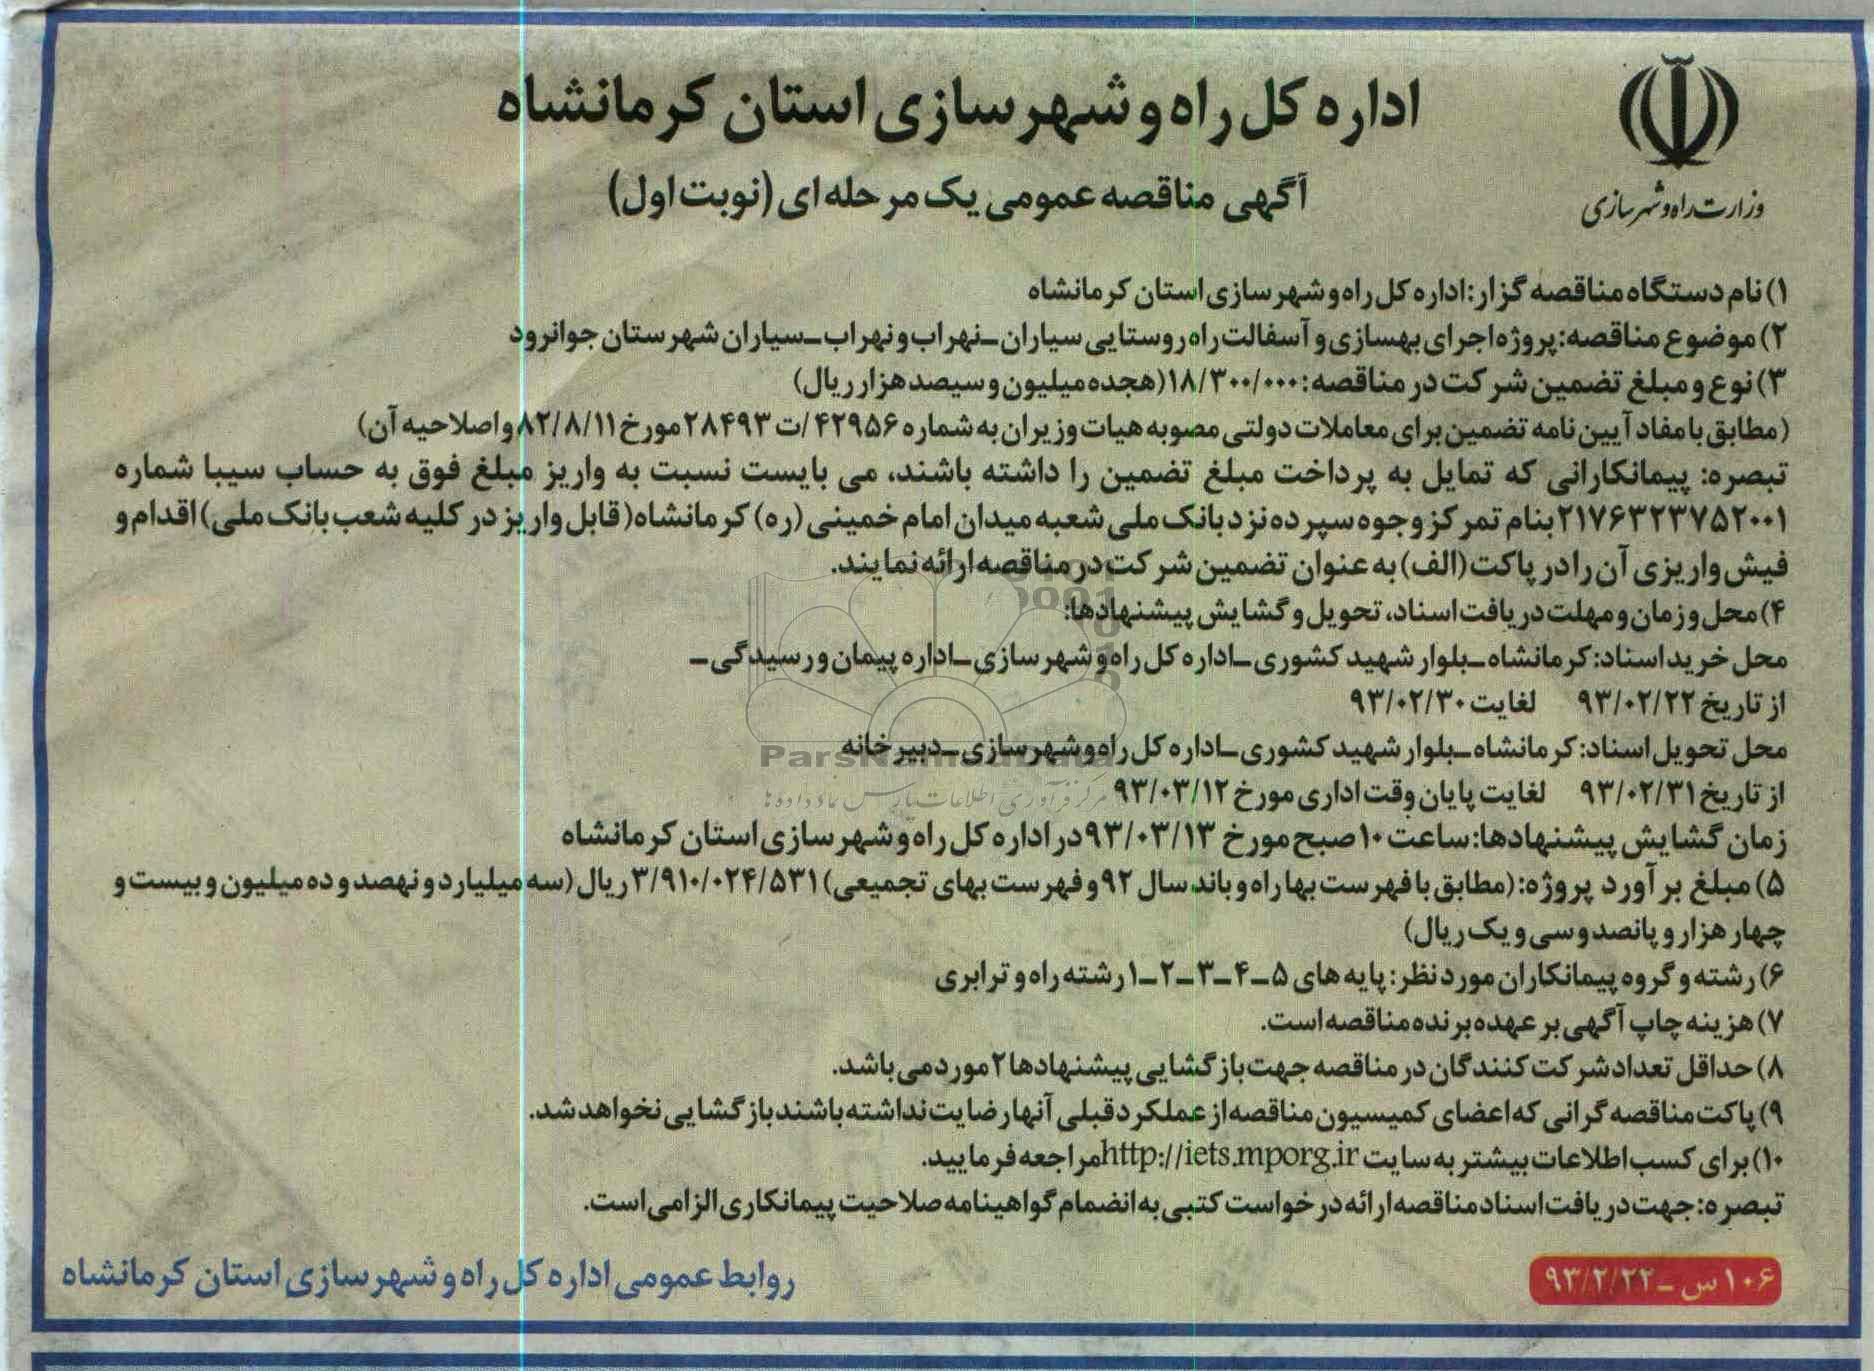 اداره کل راه و شهرسازی استان کرمانشاه
وزارت راه و شهرسازی
آگهی مناقصه عمومی یک مرحله ای (نوبت اول)
۱) نام دستگاه مناقصه گزار: اداره کل راه و شهرسازی استان کرمانشاه
۲) موضوع مناقصه: پروژه اجرای بهسازی و آسفالت راه روستایی سیاران ـ نهراب و نهراب ـ سیاران شهرستان جوانرود
۳) نوع و مبلغ تضمین شرکت در مناقصه: ۱۸/۳۰۰/۰۰۰ (هجده میلیون و سیصد هزار ریال)
(مطابق با مفاد آیین نامه تضمین برای معاملات دولتی مصوبه هیات وزیران به شماره ۴۲۹۵۶/ت ۲۸۴۹۳ مورخ ۸۲/۸/۱۱ و اصلاحیه آن)
تبصره: پیمانکارانی که تمایل به پرداخت مبلغ تضمین را داشته باشند، می بایست نسبت به واریز مبلغ فوق به حساب سیبا شماره
۲۱۷۶۳۲۳۷۵۲۰۰۱ بنام تمرکز وجوه سپرده نزد بانک ملی شعبه میدان امام خمینی (ره) کرمانشاه (قابل واریز در کلیه شعب بانک ملی) اقدام و
فیش واریزی آن را در پاکت (الف) به عنوان تضمین شرکت در مناقصه ارائه نمایند.
۴) محل و زمان و مهلت دریافت اسناد، تحویل و گشایش پیشنهادها:
محل خرید اسناد: کرمانشاه ـ بلوار شهید کشوری ـ اداره کل راه و شهرسازی ـ اداره پیمان و رسیدگی ـ
از تاریخ ۹۳/۰۲/۲۲ لغایت ۹۳/۰۲/۳۰
محل تحویل اسناد: کرمانشاه ـ بلوار شهید کشوری ـ اداره کل راه و شهرسازی ـ دبیرخانه
ParsNamadData
از تاریخ ۹۳/۰۲/۳۱ لغایت پایان وقت اداری مورخ ۹۳/۰۳/۱۲
مرکز فرآوری اطلاعات پارس نماد داده ها
زمان گشایش پیشنهادها: ساعت ۱۰ صبح مورخ ۹۳/۰۳/۱۳ در اداره کل راه و شهرسازی استان کرمانشاه
۵) مبلغ برآورد پروژه: (مطابق با فهرست بها راه و باند سال ۹۲ و فهرست بهای تجمیعی) ۳/۹۱۰/۰۲۴/۵۳۱ ریال (سه میلیارد و نهصد و ده میلیون و بیست و
چهار هزار و پانصد و سی و یک ریال)
۶) رشته و گروه پیمانکاران مورد نظر: پایه های ۵ـ۴ـ۳ـ۲ـ۱ رشته راه و ترابری
۷) هزینه چاپ آگهی بر عهده برنده مناقصه است.
۸) حداقل تعداد شرکت کنندگان در مناقصه جهت بازگشایی پیشنهادها ۲ مورد می باشد.
۹) پاکت مناقصه گرانی که اعضای کمیسیون مناقصه از عملکرد قبلی آنها رضایت نداشته باشند بازگشایی نخواهد شد.
۱۰) برای کسب اطلاعات بیشتر به سایت http://iets.mporg.ir مراجعه فرمایید.
تبصره: جهت دریافت اسناد مناقصه ارائه درخواست کتبی به انضمام گواهینامه صلاحیت پیمانکاری الزامی است.
۱۰۶س ـ ۹۳/۲/۲۲
روابط عمومی اداره کل راه و شهرسازی استان کرمانشاه